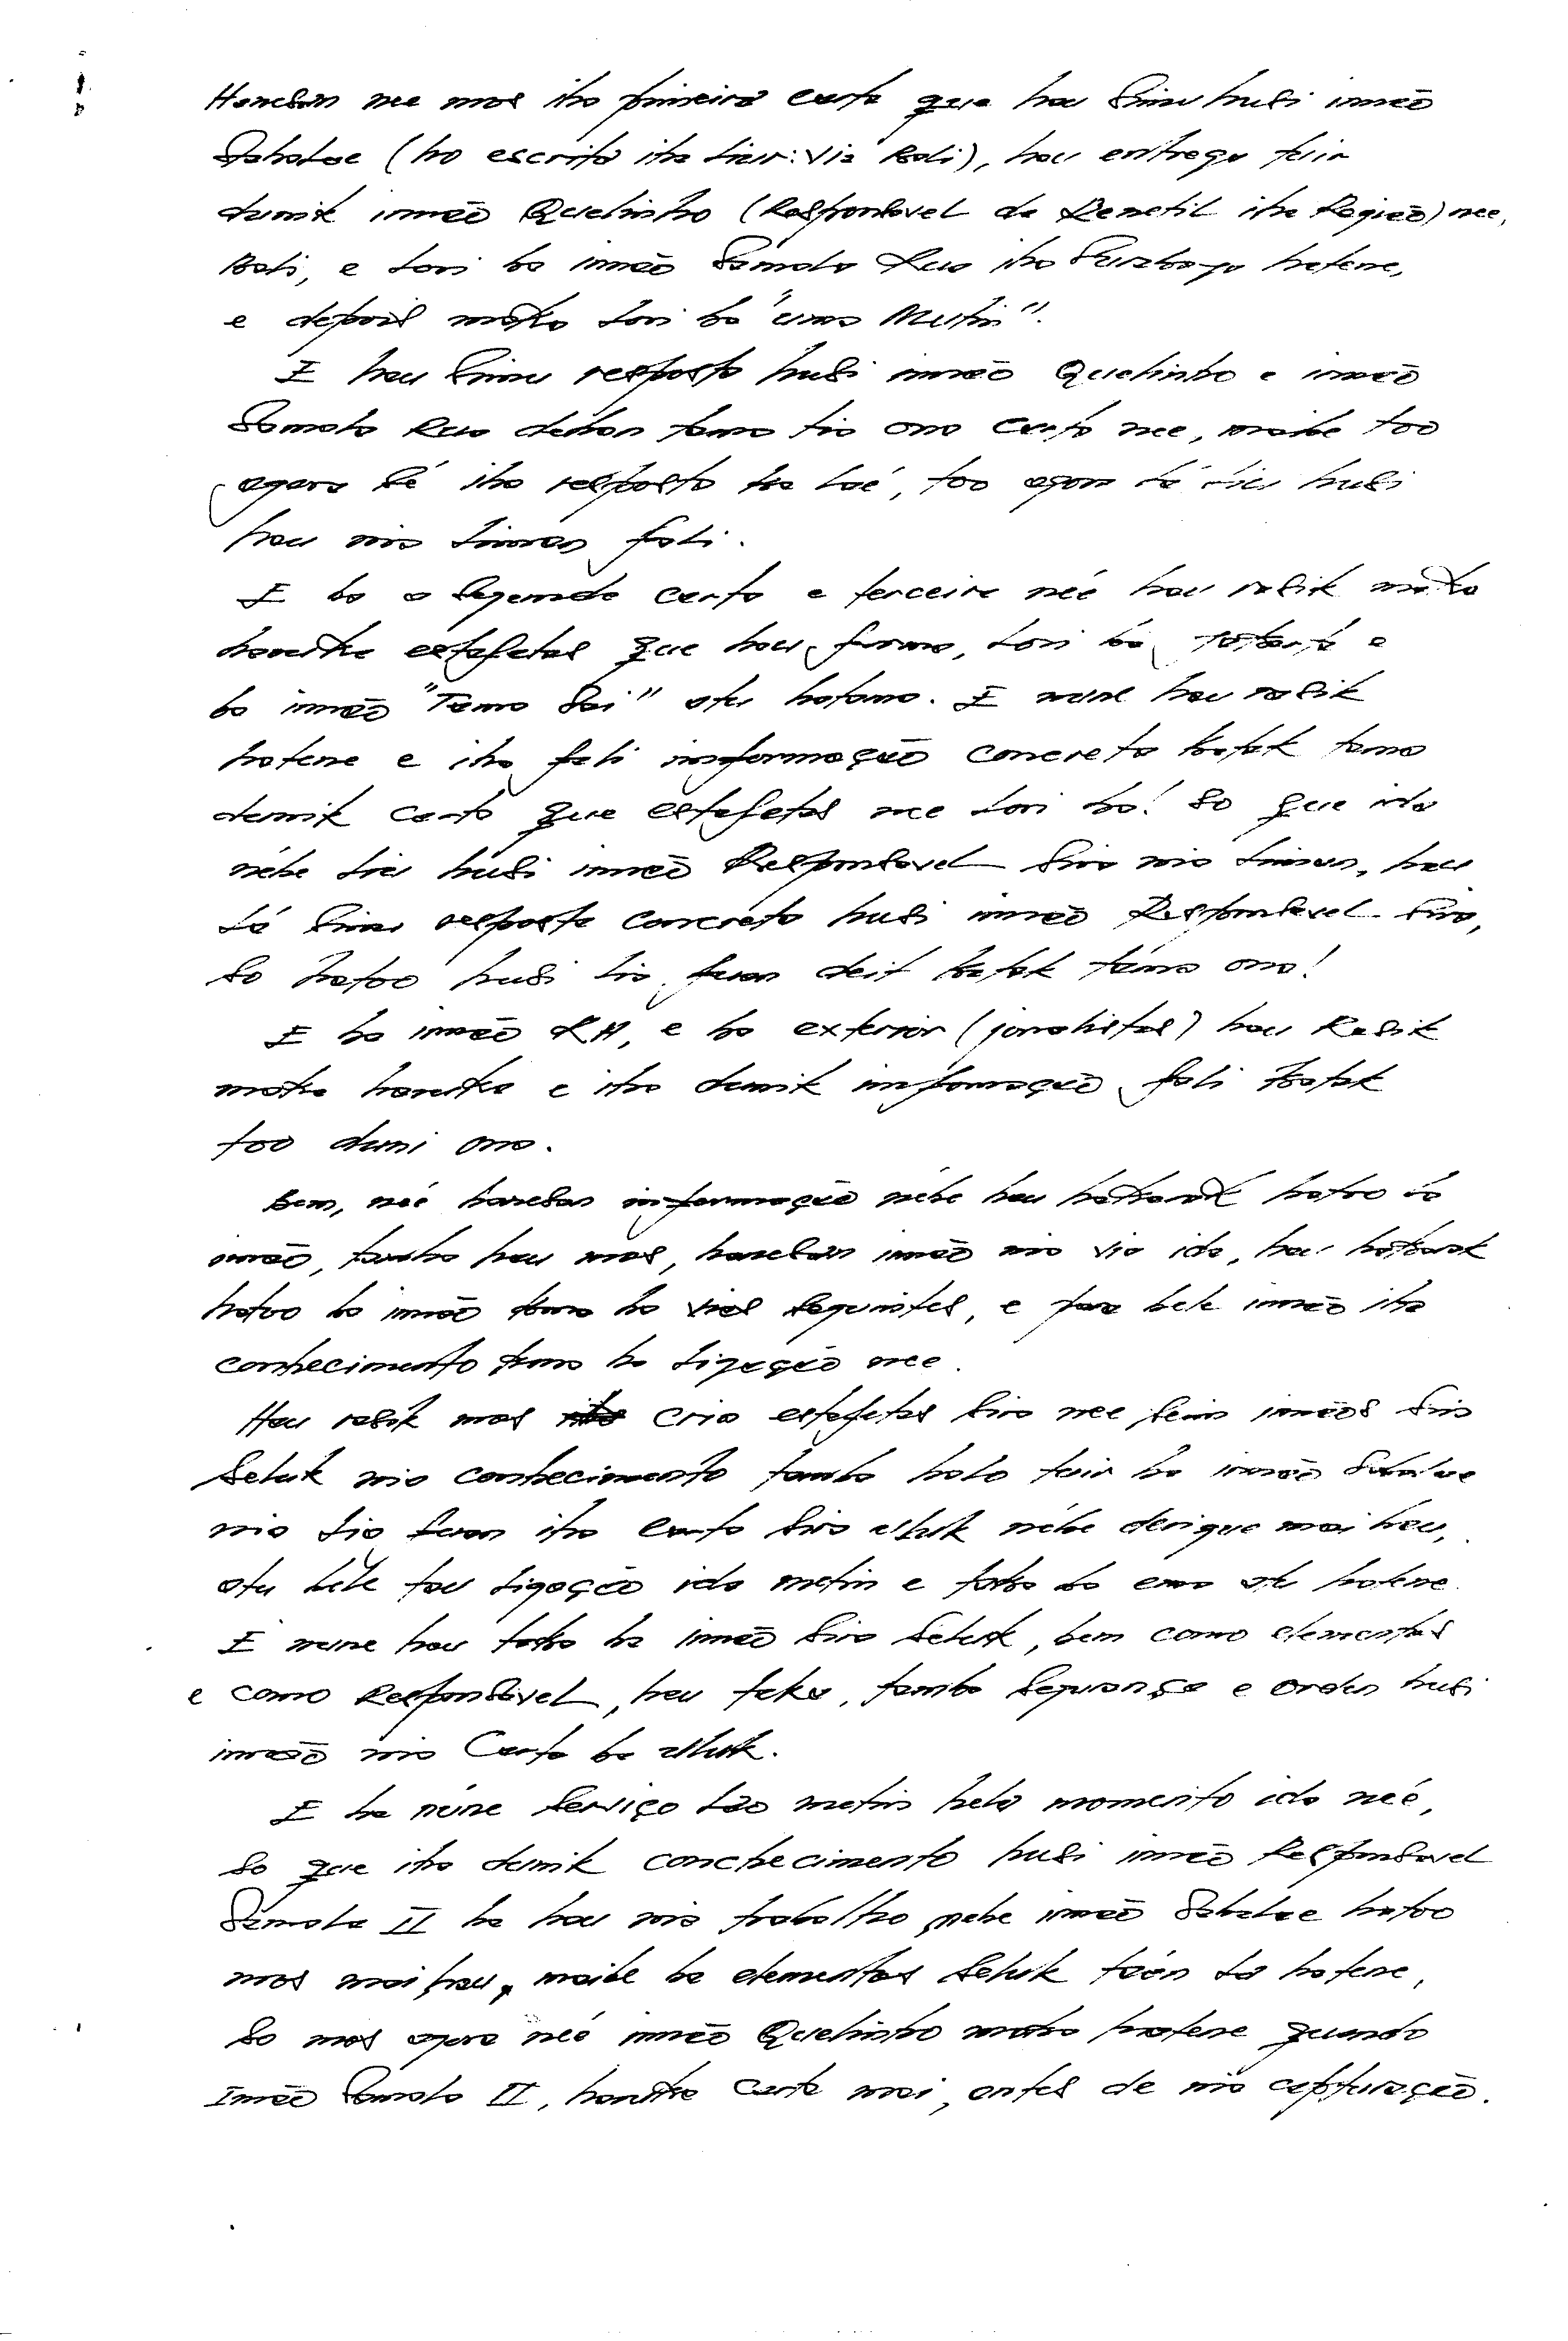 Hanesan nee mos iha primeira carta que hau simu husi irmão
Sabalae (ho escrita iha liur: via Bali), hau entrega tuir
dunik irmão Quelinho (Responsavel da Renetil iha Região) nee,
Bali, e lori ba irmão Samala Rua iha Surabaya hatene,
e depois mako lori ba "uma Mutin".
E hau simu resposta husi irmão Quelinho e irmão
Samala Rua dehan tama tia ona carta nee, maibe too
agora sé iha resposta ka laé, too agora lá liu husi
hau nia liman fali.
E ba a segunda carta e terceira neé hau rasik mako
haruka estafetas que hau forma, lori ba Jakarta e
ba irmão "Temo Sai" atu hatama. E nune hau rasik
hatene e iha fali informação concreta katak tama
dunik carta que estafetas nee lori ba! So que ida
nébe liu husi irmão Responsavel sira nia liman, hau
lá simu resposta concreta husi irmão Responsavel sira,
so hatoo husi lia fuan deit katak táma ona!
E ba irmão KA, e ba exterior (jornalistas) hau Rasik
mako haruka e iha dunik informação fali katak
too duni ona.
Bem, neé hanesan informação nébe hau hakarak hatoo ba
irmão, tamba hau mos, hanesan irmão nia via ida, hau hakarak
hatoo ba irmão kona ba vias seguintes, e para bele irmão iha
conhecimento kona ba ligação nee.
Hau rasik mos cria estafetas sira nee sein irmãos sira
seluk nia conhecimento tamba halo tuir ba irmão Sabalae
nia lia fuan iha carta sira uluk nébe derigue mai hau,
atu bele tau ligação ida metin e taka ba ema atu hatene.
E nune hau taka ba irmão sira seluk, bem como elementos
e como Responsável, hau taka, tamba segurança e orden husi
irmão nia Carta ba uluk.
E ha núne serviço lao metin hela momento ida neé,
so que iha dunik conchecimento husi irmão Responsavel
Samala II ba hau nia trabalho nebe irmão Sabalae hatoo
mos mai hau, maibe ba elementos seluk táan lá hatene,
so mos agora neé irmão Quelinho mako hatene quando
Irmão Samala II, haruka carta mai, antes de nia capturação.